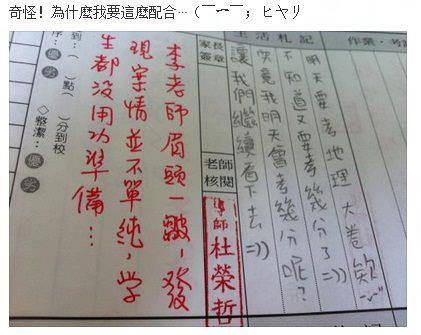 奇怪! 為什麼我要這麼配合…(￣ー￣; ヒヤリ
作業‧考試
生活札記
明天要考地理大卷欸-.-"
不知道又要考幾分了=))
究竟我明天會考幾分呢?
讓我們繼續看下去=))
家長簽章
老師核閱
導師 杜榮哲
李老師眉頭一皺,發
現案情並不單純,學
生都沒用功準備…
( )點( )分到校
◇整潔:優 劣